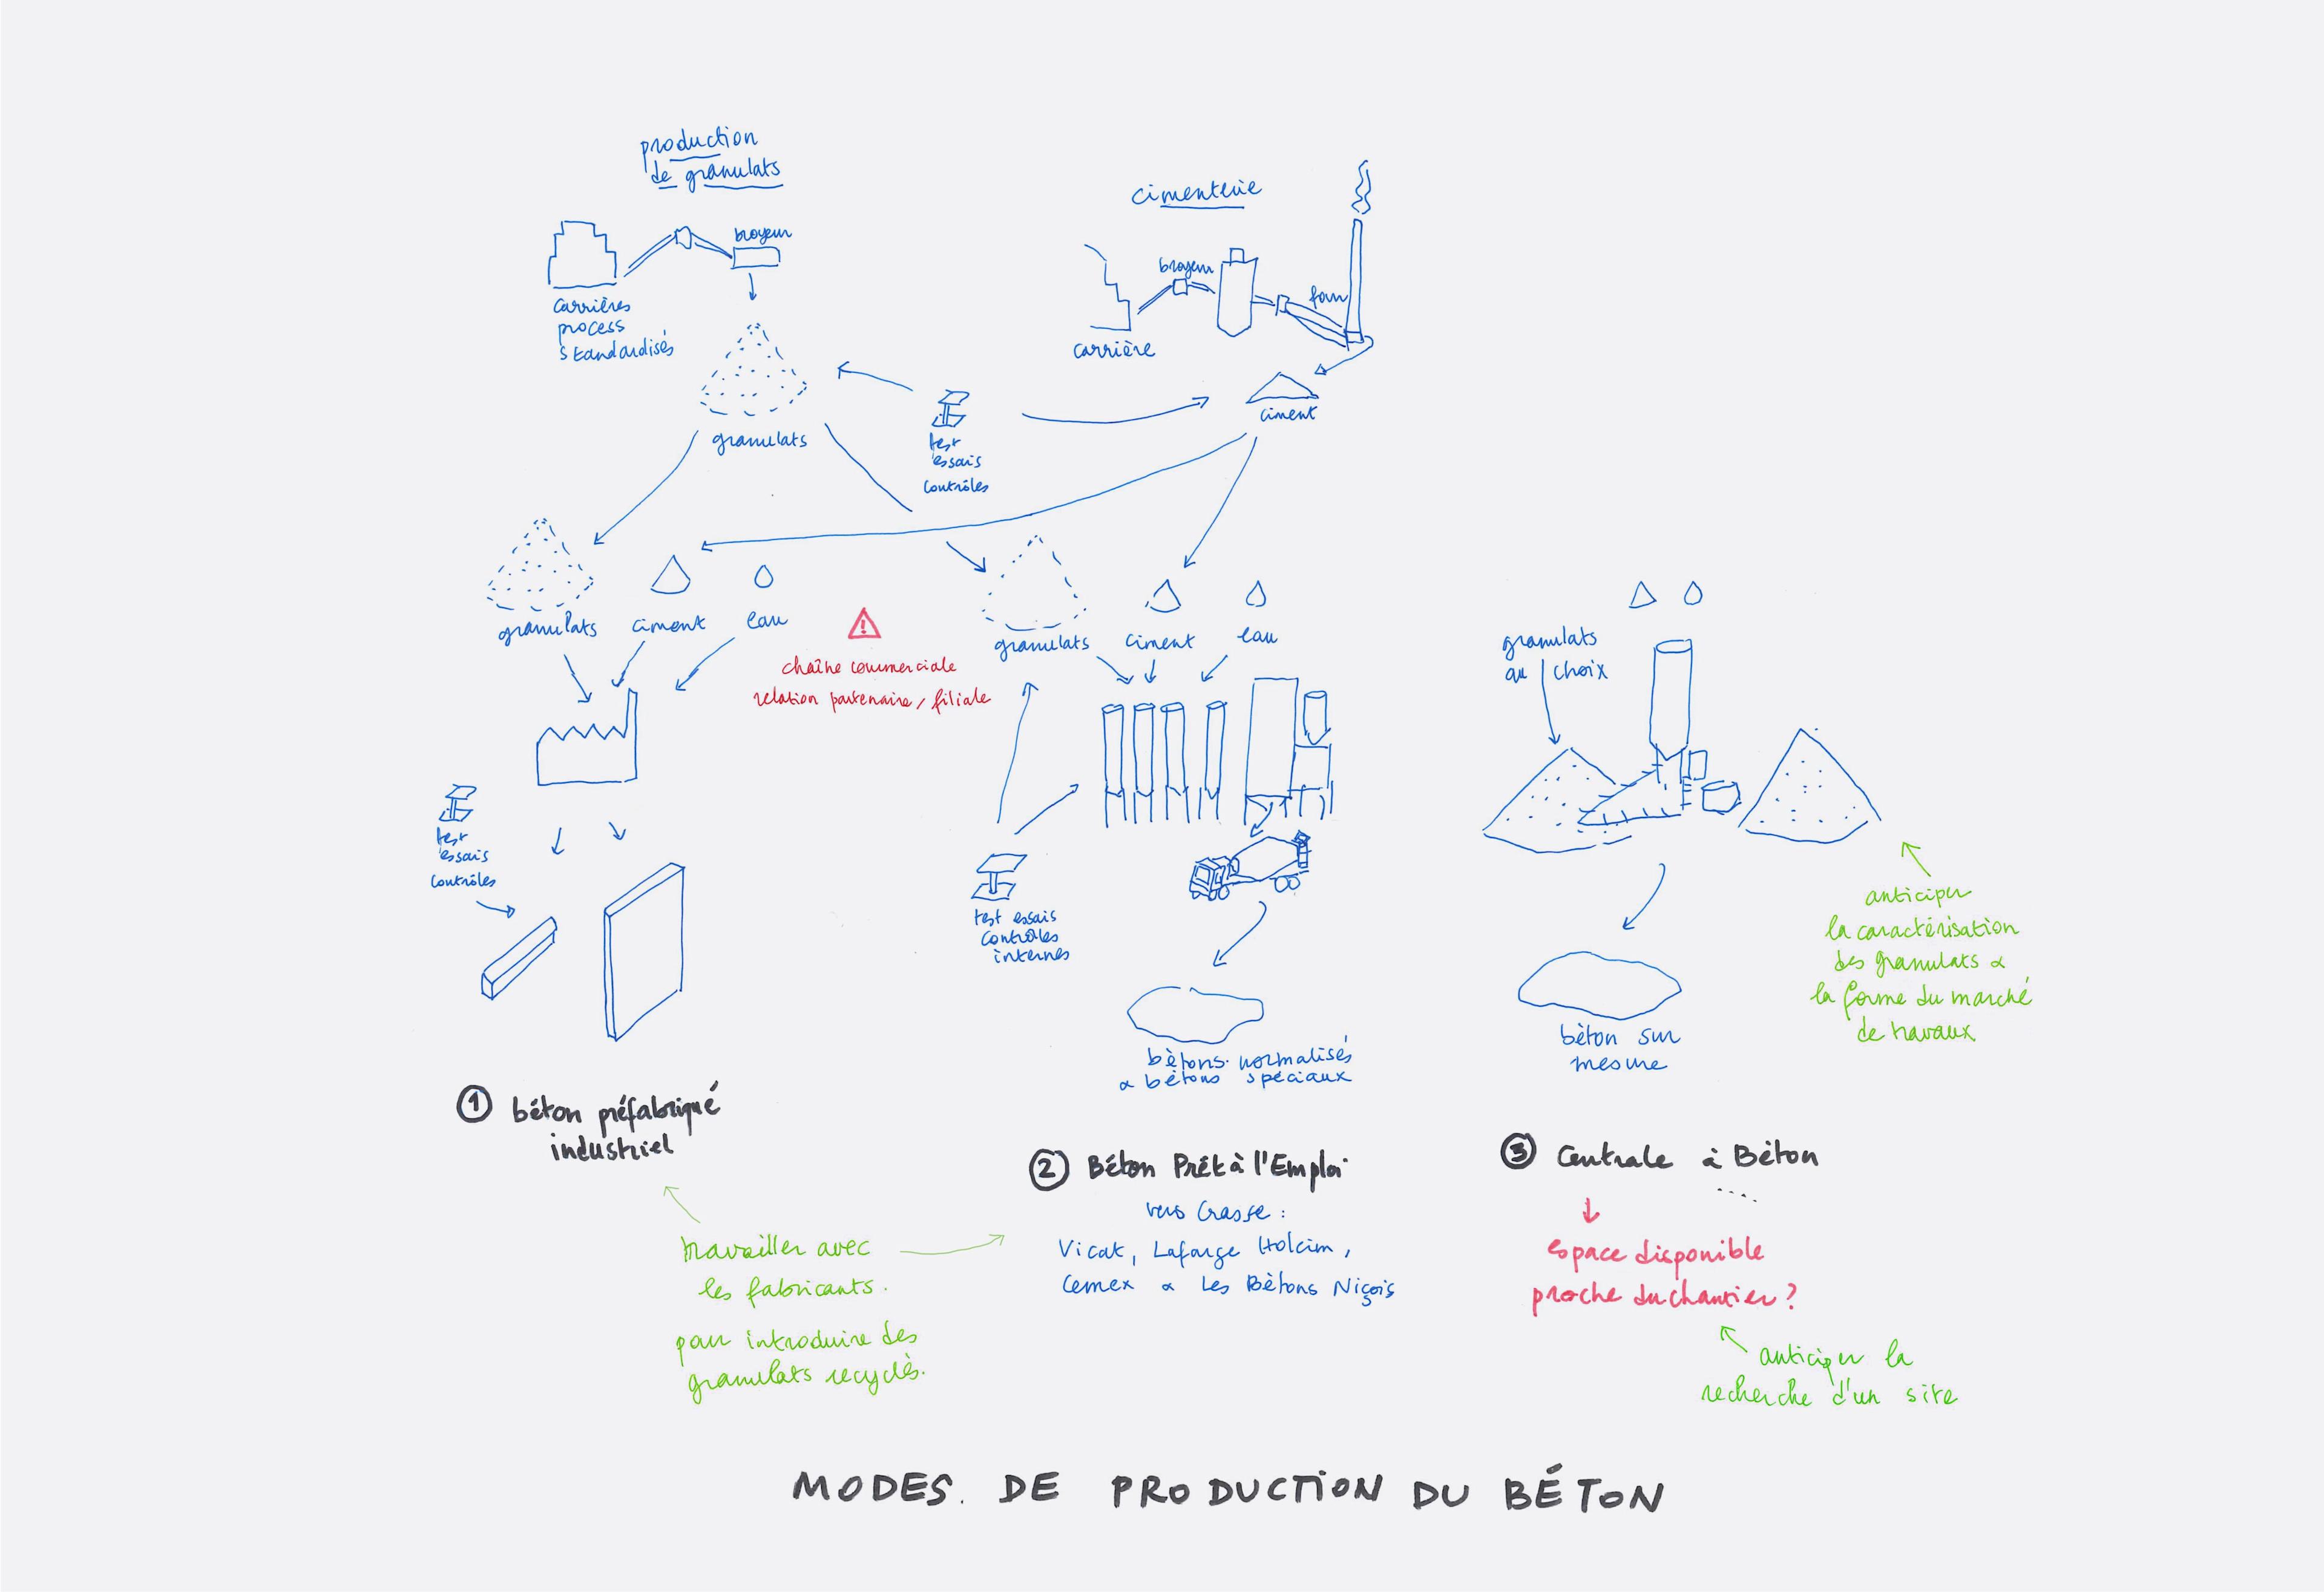 production
de granulats
broyeur
carrières
process
standardisés
granulats
cimenterie
broyeur
four
carrière
ciment
test
essais
contrôles
granulats
ciment
eau
chaîne commerciale
relation partenaire / filiale
granulats
ciment
eau
granulats
au choix
test
essais
contrôles
test essais
contrôles
internes
bétons normalisés
& bétons spéciaux
béton sur
mesure
anticiper
la caractérisation
des granulats &
la forme du marché
de travaux
① béton préfabriqué
industriel
② Béton Prêt à l'Emploi
vers Grasse :
Vicat, Lafarge Holcim,
Cemex & Les Bétons Niçois
③ Centrale à Béton
espace disponible
proche du chantier ?
anticiper la
recherche d'un site
travailler avec
les fabricants.
pour introduire des
granulats recyclés.
MODES. DE PRODUCTION DU BÉTON